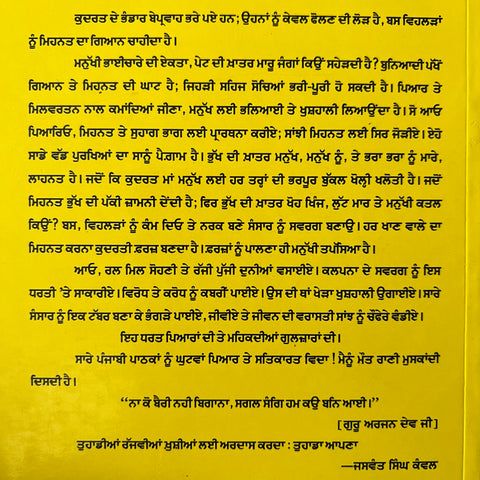 ਕੁਦਰਤ ਦੇ ਭੰਡਾਰ ਬੇਪ੍ਰਵਾਹ ਭਰੇ ਪਏ ਹਨ; ਉਹਨਾਂ ਨੂੰ ਕੇਵਲ ਫੋਲਣ ਦੀ ਲੋੜ ਹੈ, ਬਸ ਵਿਹਲੜਾਂ
ਨੂੰ ਮਿਹਨਤ ਦਾ ਗਿਆਨ ਚਾਹੀਦਾ ਹੈ।
ਮਨੁੱਖੀ ਭਾਈਚਾਰੇ ਦੀ ਏਕਤਾ, ਪੇਟ ਦੀ ਖ਼ਾਤਰ ਮਾਰੂ ਜੰਗਾਂ ਕਿਉਂ ਸਹੇੜਦੀ ਹੈ? ਬੁਨਿਆਦੀ ਪੱਖੋਂ
ਗਿਆਨ ਤੇ ਮਿਹਨਤ ਦੀ ਘਾਟ ਹੈ; ਜਿਹੜੀ ਸਹਿਜ ਸੋਚਿਆਂ ਭਰੀ-ਪੂਰੀ ਹੋ ਸਕਦੀ ਹੈ। ਪਿਆਰ ਤੇ
ਮਿਲਵਰਤਨ ਨਾਲ ਕਮਾਂਦਿਆਂ ਜੀਣਾ, ਮਨੁੱਖ ਲਈ ਭਲਿਆਈ ਤੇ ਖੁਸ਼ਹਾਲੀ ਲਿਆਉਂਦਾ ਹੈ। ਸੋ ਆਓ
ਪਿਆਰਿਓ, ਮਿਹਨਤ ਤੇ ਸੁਹਾਗ ਭਾਗ ਲਈ ਪ੍ਰਾਰਥਨਾ ਕਰੀਏ; ਸਾਂਝੀ ਮਿਹਨਤ ਲਈ ਸਿਰ ਜੋੜੀਏ। ਏਹੋ
ਸਾਡੇ ਵੱਡ ਪੁਰਖਿਆਂ ਦਾ ਸਾਨੂੰ ਪੈਗ਼ਾਮ ਹੈ। ਭੁੱਖ ਦੀ ਖ਼ਾਤਰ ਮਨੁੱਖ, ਮਨੁੱਖ ਨੂੰ, ਤੇ ਭਰਾ ਭਰਾ ਨੂੰ ਮਾਰੇ,
ਲਾਹਨਤ ਹੈ। ਜਦੋਂ ਕਿ ਕੁਦਰਤ ਮਾਂ ਮਨੁੱਖ ਲਈ ਹਰ ਤਰ੍ਹਾਂ ਦੀ ਭਰਪੂਰ ਬੁੱਕਲ ਖੋਲ੍ਹੀ ਖਲੋਤੀ ਹੈ। ਜਦੋਂ
ਮਿਹਨਤ ਭੁੱਖ ਦੀ ਪੱਕੀ ਜ਼ਾਮਨੀ ਦੇਂਦੀ ਹੈ; ਫਿਰ ਭੁੱਖ ਦੀ ਖ਼ਾਤਰ ਖੋਹ ਖਿੰਜ, ਲੁੱਟ ਮਾਰ ਤੇ ਮਨੁੱਖੀ ਕਤਲ
ਕਿਉਂ? ਬਸ, ਵਿਹਲੜਾਂ ਨੂੰ ਕੰਮ ਦਿਓ ਤੇ ਨਰਕ ਬਣੇ ਸੰਸਾਰ ਨੂੰ ਸਵਰਗ ਬਣਾਉ। ਹਰ ਖਾਣ ਵਾਲੇ ਦਾ
ਮਿਹਨਤ ਕਰਨਾ ਕੁਦਰਤੀ ਫ਼ਰਜ਼ ਬਣਦਾ ਹੈ। ਫ਼ਰਜ਼ਾਂ ਨੂੰ ਪਾਲਣਾ ਹੀ ਮਨੁੱਖੀ ਤਪੱਸਿਆ ਹੈ।
ਆਓ, ਰਲ ਮਿਲ ਸੋਹਣੀ ਤੇ ਰੱਜੀ ਪੁੱਜੀ ਦੁਨੀਆਂ ਵਸਾਈਏ। ਕਲਪਨਾ ਦੇ ਸਵਰਗ ਨੂੰ ਇਸ
ਧਰਤੀ 'ਤੇ ਸਾਕਾਰੀਏ। ਵਿਰੋਧ ਤੇ ਕਰੋਧ ਨੂੰ ਕਬਰੀਂ ਪਾਈਏ। ਉਸ ਦੀ ਥਾਂ ਖੇੜਾ ਖੁਸ਼ਹਾਲੀ ਉਗਾਈਏ। ਸਾਰੇ
ਸੰਸਾਰ ਨੂੰ ਇਕ ਟੱਬਰ ਬਣਾ ਕੇ ਭੰਗੜੇ ਪਾਈਏ, ਜੀਵੀਏ ਤੇ ਜੀਵਨ ਦੀ ਵਰਾਸਤੀ ਸਾਂਝ ਨੂੰ ਚੌਫੇਰੇ ਵੰਡੀਏ।
ਇਹ ਧਰਤ ਪਿਆਰਾਂ ਦੀ ਤੇ ਮਹਿਕਦੀਆਂ ਗੁਲਜ਼ਾਰਾਂ ਦੀ।
ਸਾਰੇ ਪੰਜਾਬੀ ਪਾਠਕਾਂ ਨੂੰ ਘੁਟਵਾਂ ਪਿਆਰ ਤੇ ਸਤਿਕਾਰਤ ਵਿਦਾ! ਮੈਨੂੰ ਮੌਤ ਰਾਣੀ ਮੁਸਕਾਂਦੀ
ਦਿਸਦੀ ਹੈ।
"ਨਾ ਕੋ ਬੈਰੀ ਨਹੀ ਬਿਗਾਨਾ, ਸਗਲ ਸੰਗਿ ਹਮ ਕਉ ਬਨਿ ਆਈ।"
[ਗੁਰੂ ਅਰਜਨ ਦੇਵ ਜੀ]
ਤੁਹਾਡੀਆਂ ਰੱਜਵੀਆਂ ਖ਼ੁਸ਼ੀਆਂ ਲਈ ਅਰਦਾਸ ਕਰਦਾ : ਤੁਹਾਡਾ ਆਪਣਾ
—ਜਸਵੰਤ ਸਿੰਘ ਕੰਵਲ